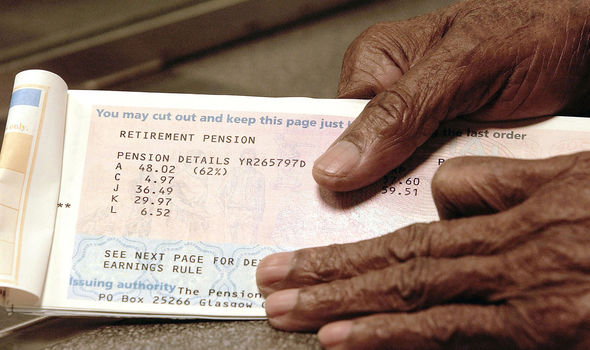 only.
You may cut out and keep this page just
the last order
RETIREMENT PENSION
PENSION DETAILS YR265797D
A 48.02 (62%)
C 4.97
J 36.49
K 29.97
L 6.52
.60
39.51
**
SEE NEXT PAGE FOR
EARNINGS RULE
Issuing authority The Pension
PO Box 25266 Glasgow